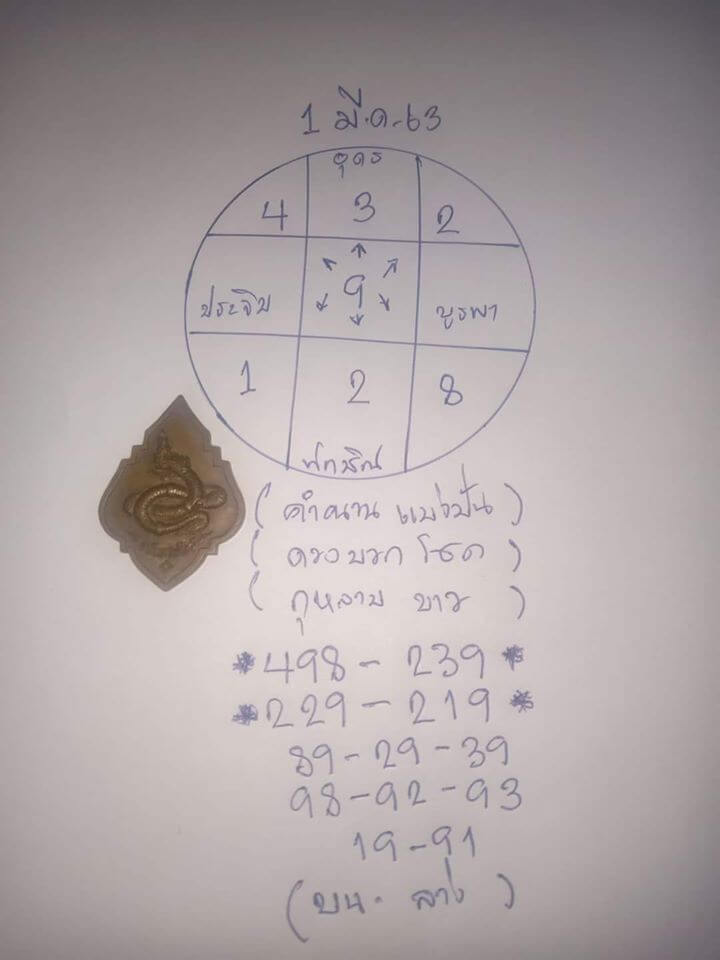 1 มี.ค.63
อุดร
4 3 2
ประจิม 9 บูรพา
1 2 8
ทักษิณ
(คำนวน แบ่งปัน)
(ดวงบวก โชค)
(กุหลาบ ขาว)
*498 - 239*
*229 - 219*
89 - 29 - 39
98 - 92 - 93
19 - 91
(บน. ล่าง)